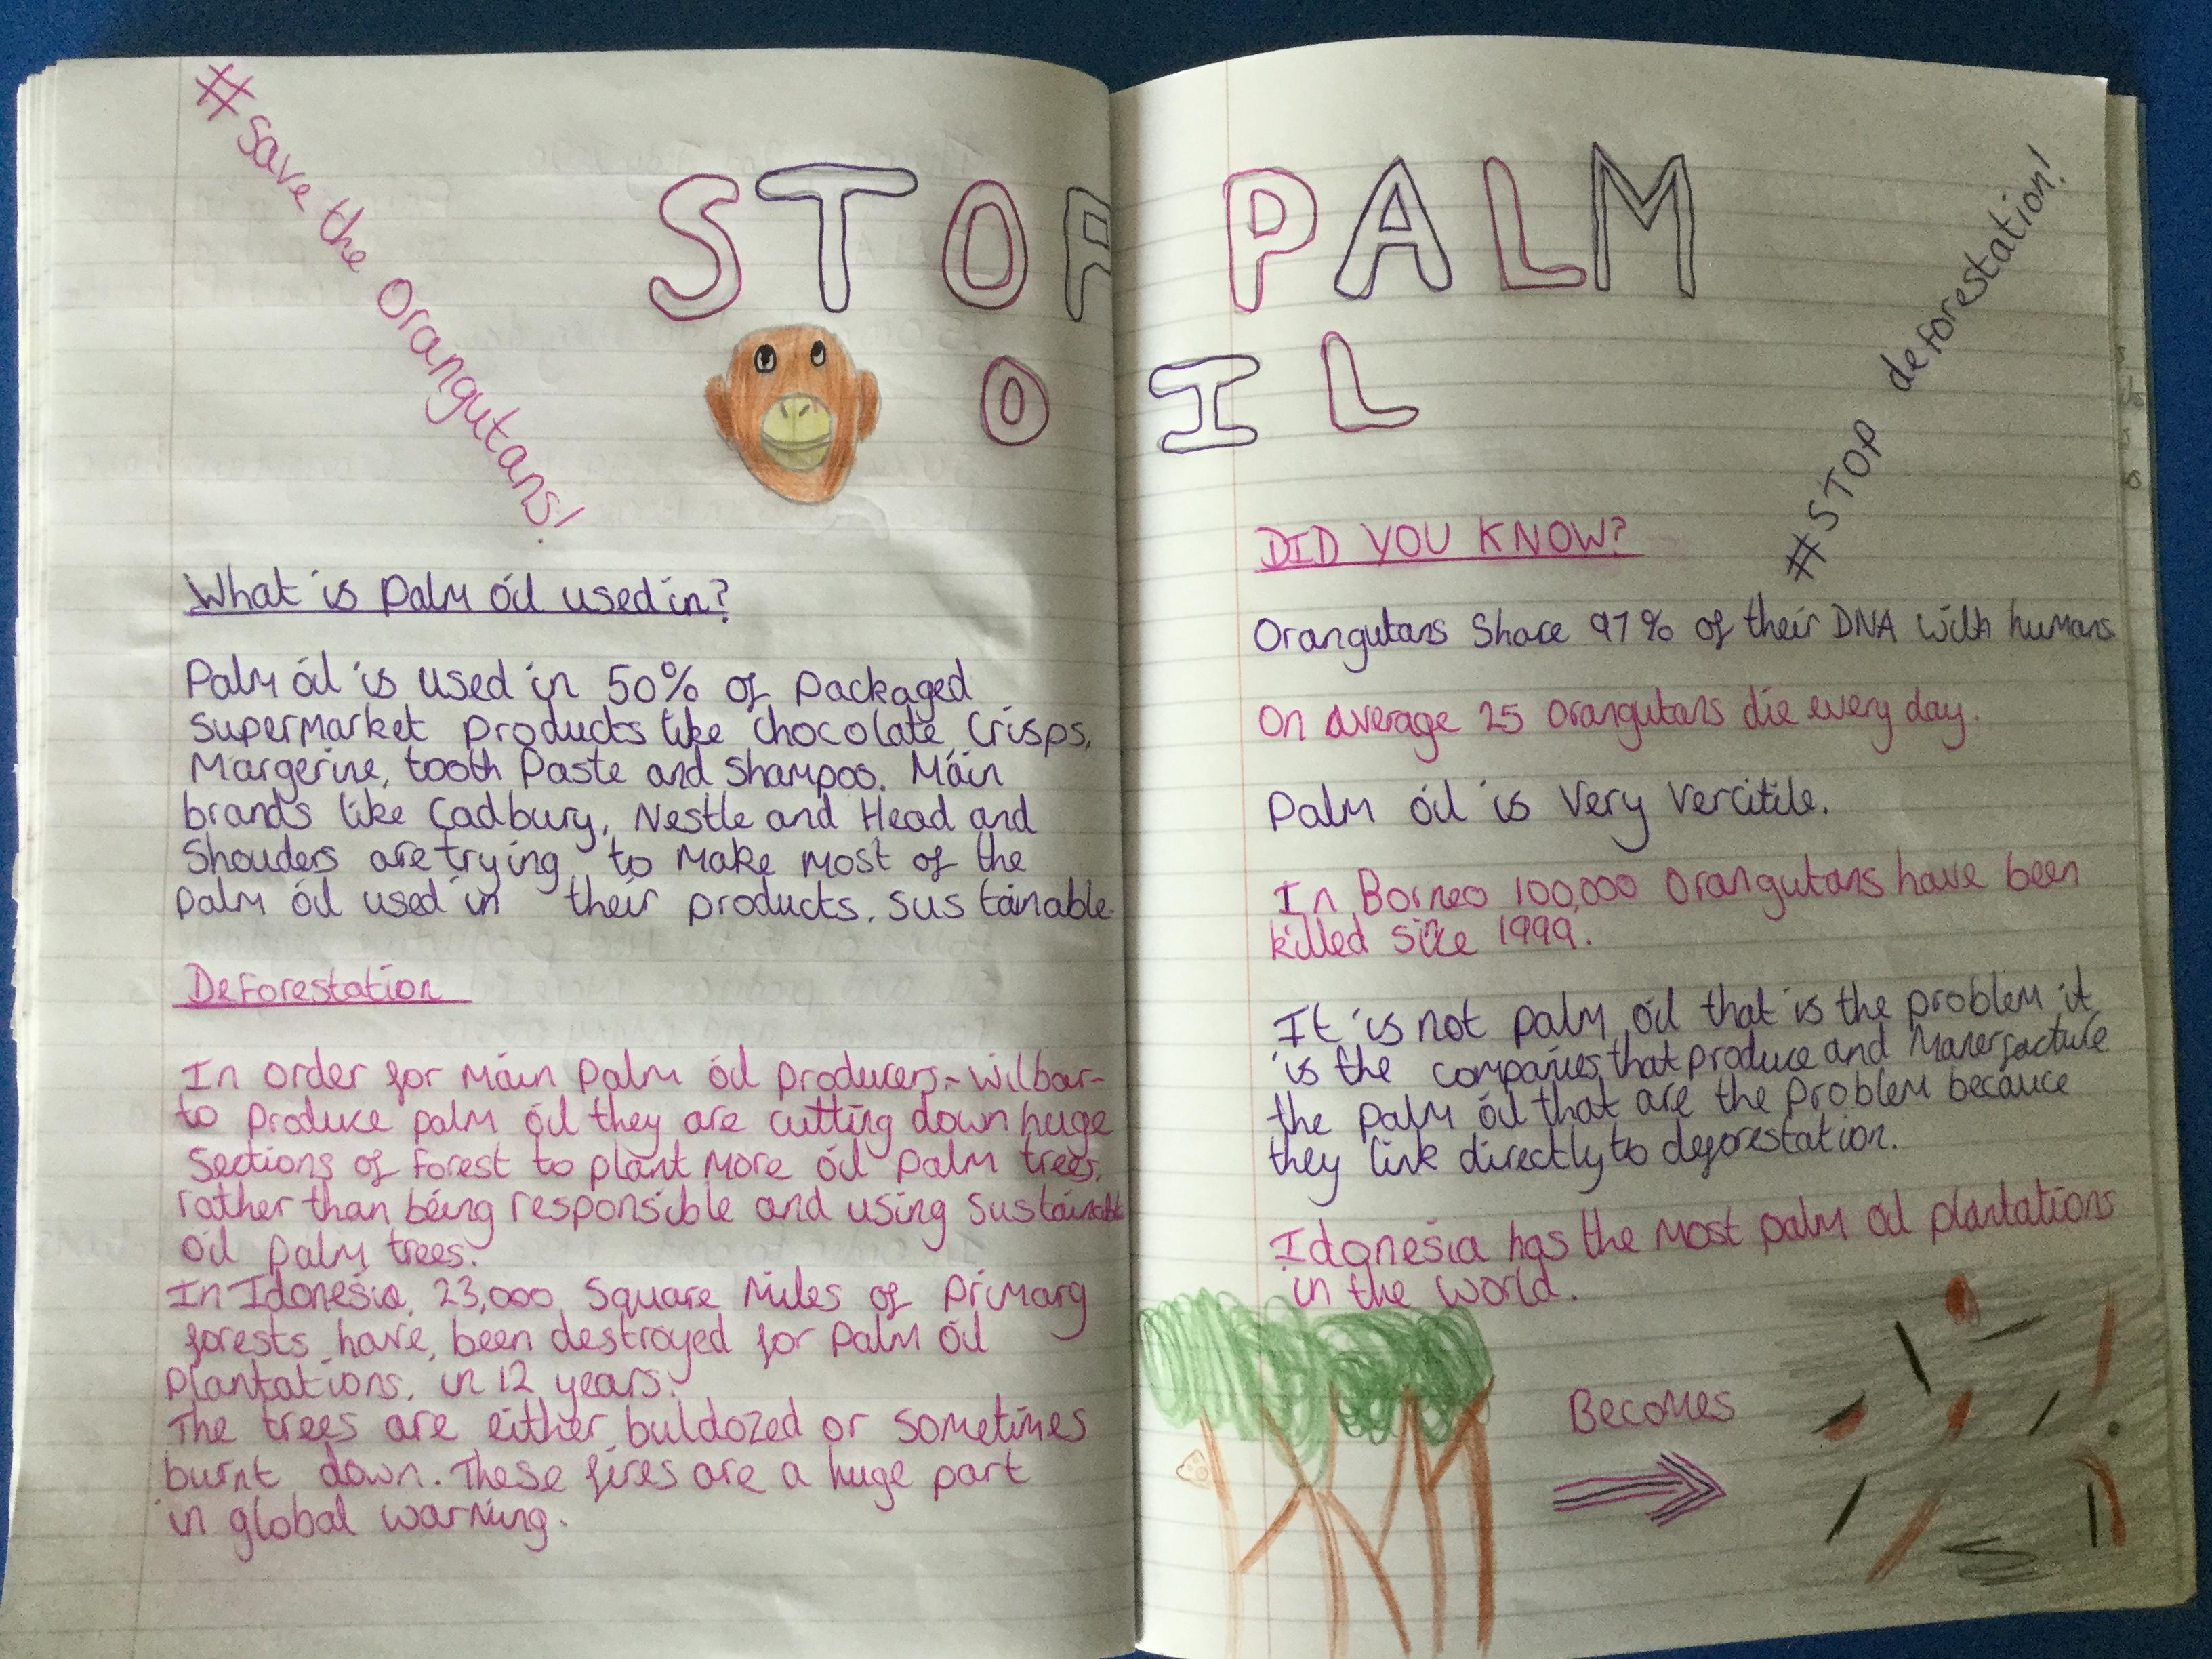 #save the orangutans!
STOP PALM
OIL
#STOP deforestation!
What is palm oil used in?
Palm oil is used in 50% of packaged
supermarket products like chocolate, crisps,
Margerine, tooth paste and shampoo. Main
brands like Cadbury, Nestle and Head and
Shouders are trying to make most of the
palm oil used in their products, sustainable.
Deforestation
In order for main palm oil producers - Wilbar -
to produce palm oil they are cutting down huge
sections of forest to plant more oil palm trees,
rather than being responsible and using sustainable
oil palm trees.
In Idonesia, 23,000 square miles of primary
forests have been destroyed for palm oil
plantations, in 12 years.
The trees are either buldozed or sometimes
burnt down. These fires are a huge part
in global warming.
DID YOU KNOW?
Orangutans share 97% of their DNA with humans.
On average 25 orangutans die every day.
Palm oil is very vercitile.
In Borneo 100,000 orangutans have been
killed since 1999.
It is not palm oil that is the problem it
is the companies that produce and manerfacture
the palm oil that are the problem becauce
they link directly to deforestation.
Idonesia has the most palm oil plantations
in the world.
Becomes